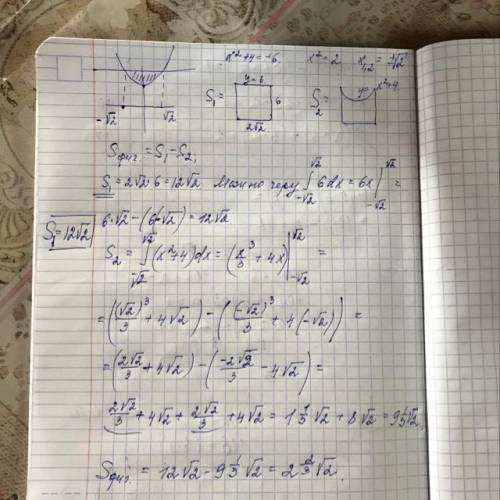 x²+4=-6. x²=2 x₁,₂=±√2
y=6 y=x²+4
S₁= 6 S₂
-√2 √2 2√2
Sфиг.=S₁-S₂,
S₁=2√2·6=12√2 Можно через ∫_{-√2}^{√2} 6dx=6x|_{-√2}^{√2}=
S₁=12√2 6·√2-(6·(-√2))=12√2
S₂=∫_{-√2}^{√2}(x²+4)dx=(x³/3+4x)|_{-√2}^{√2}=
=((√2)³/3+4√2)-((-√2)³/3+4(-√2))=
=(2√2/3+4√2)-(-2√2/3-4√2)=
2√2/3+4√2+2√2/3+4√2=1 1/3√2+8√2=9 1/3√2,
Sфиг.=12√2-9 1/3√2=2 2/3√2.